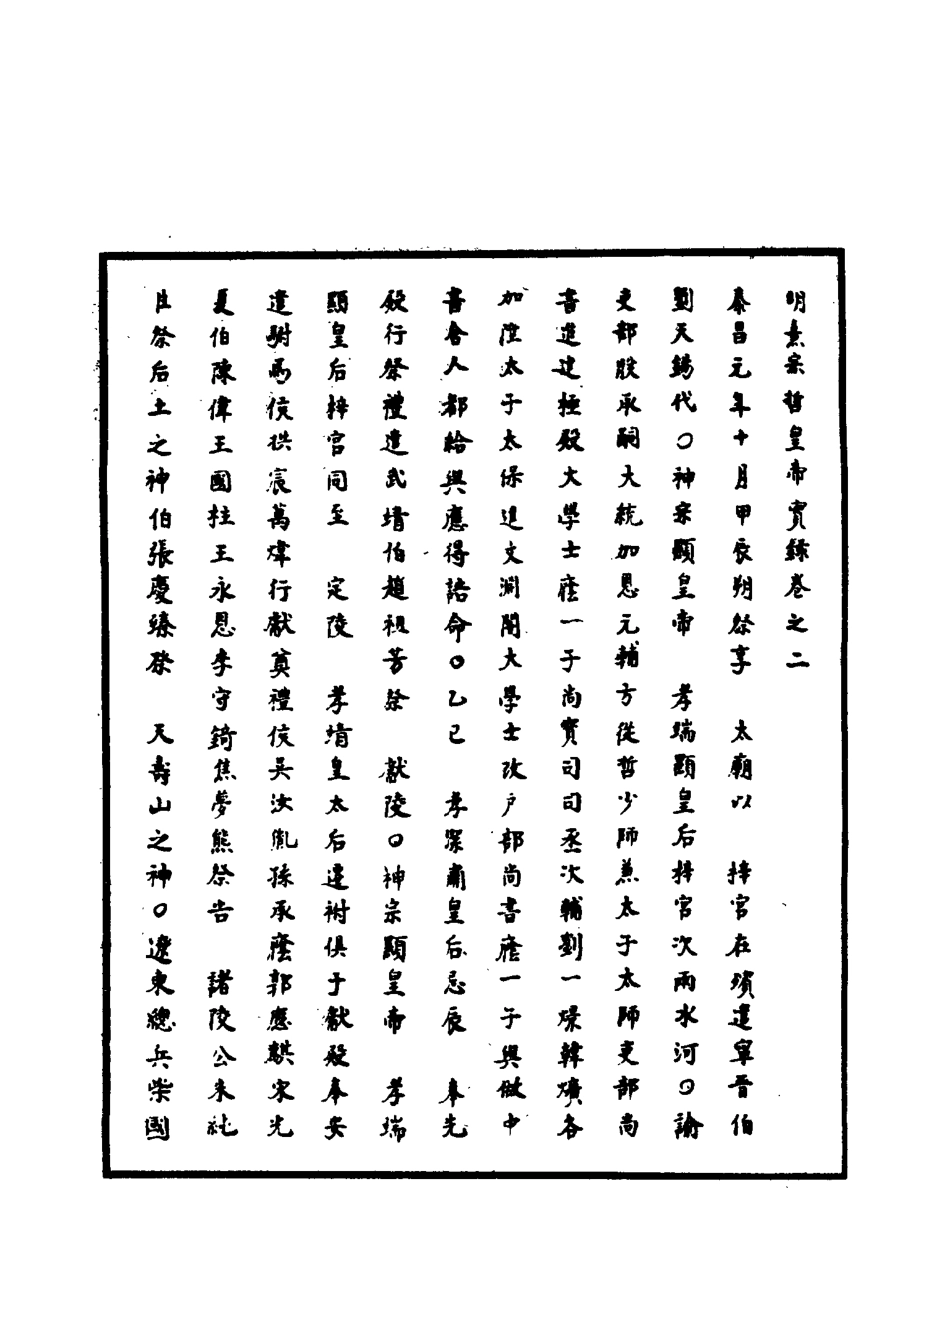 明熹宗哲皇帝實錄卷之二
泰昌元年十月甲辰朔祭享　太廟以　梓宮在殯遣寧晉伯
劉天錫代〇神宗顯皇帝　孝端顯皇后梓宮次兩水河〇諭
吏部朕承嗣大統加恩元輔方從哲少師兼太子太師吏部尚
書進建極殿大學士廕一子尚寶司司丞次輔劉一燝韓爌各
加陞太子太保進文淵閣大學士改户部尚書廕一子與做中
書舍人都給與應得誥命〇乙巳　孝潔肅皇后忌辰　奉先
殿行祭禮遣武靖伯趙祖芳祭　獻陵〇神宗顯皇帝　孝端
顯皇后梓宮同至　定陵　孝靖皇太后遷祔俱于獻殿奉安
遣駙馬侯拱宸萬煒行獻奠禮侯吳汝胤孫承廕郭應麒宋光
夏伯陳偉王國柱王永恩李守錡焦夢熊祭告　諸陵公朱純
臣祭后土之神伯張慶臻祭　天壽山之神〇遼東總兵柴國